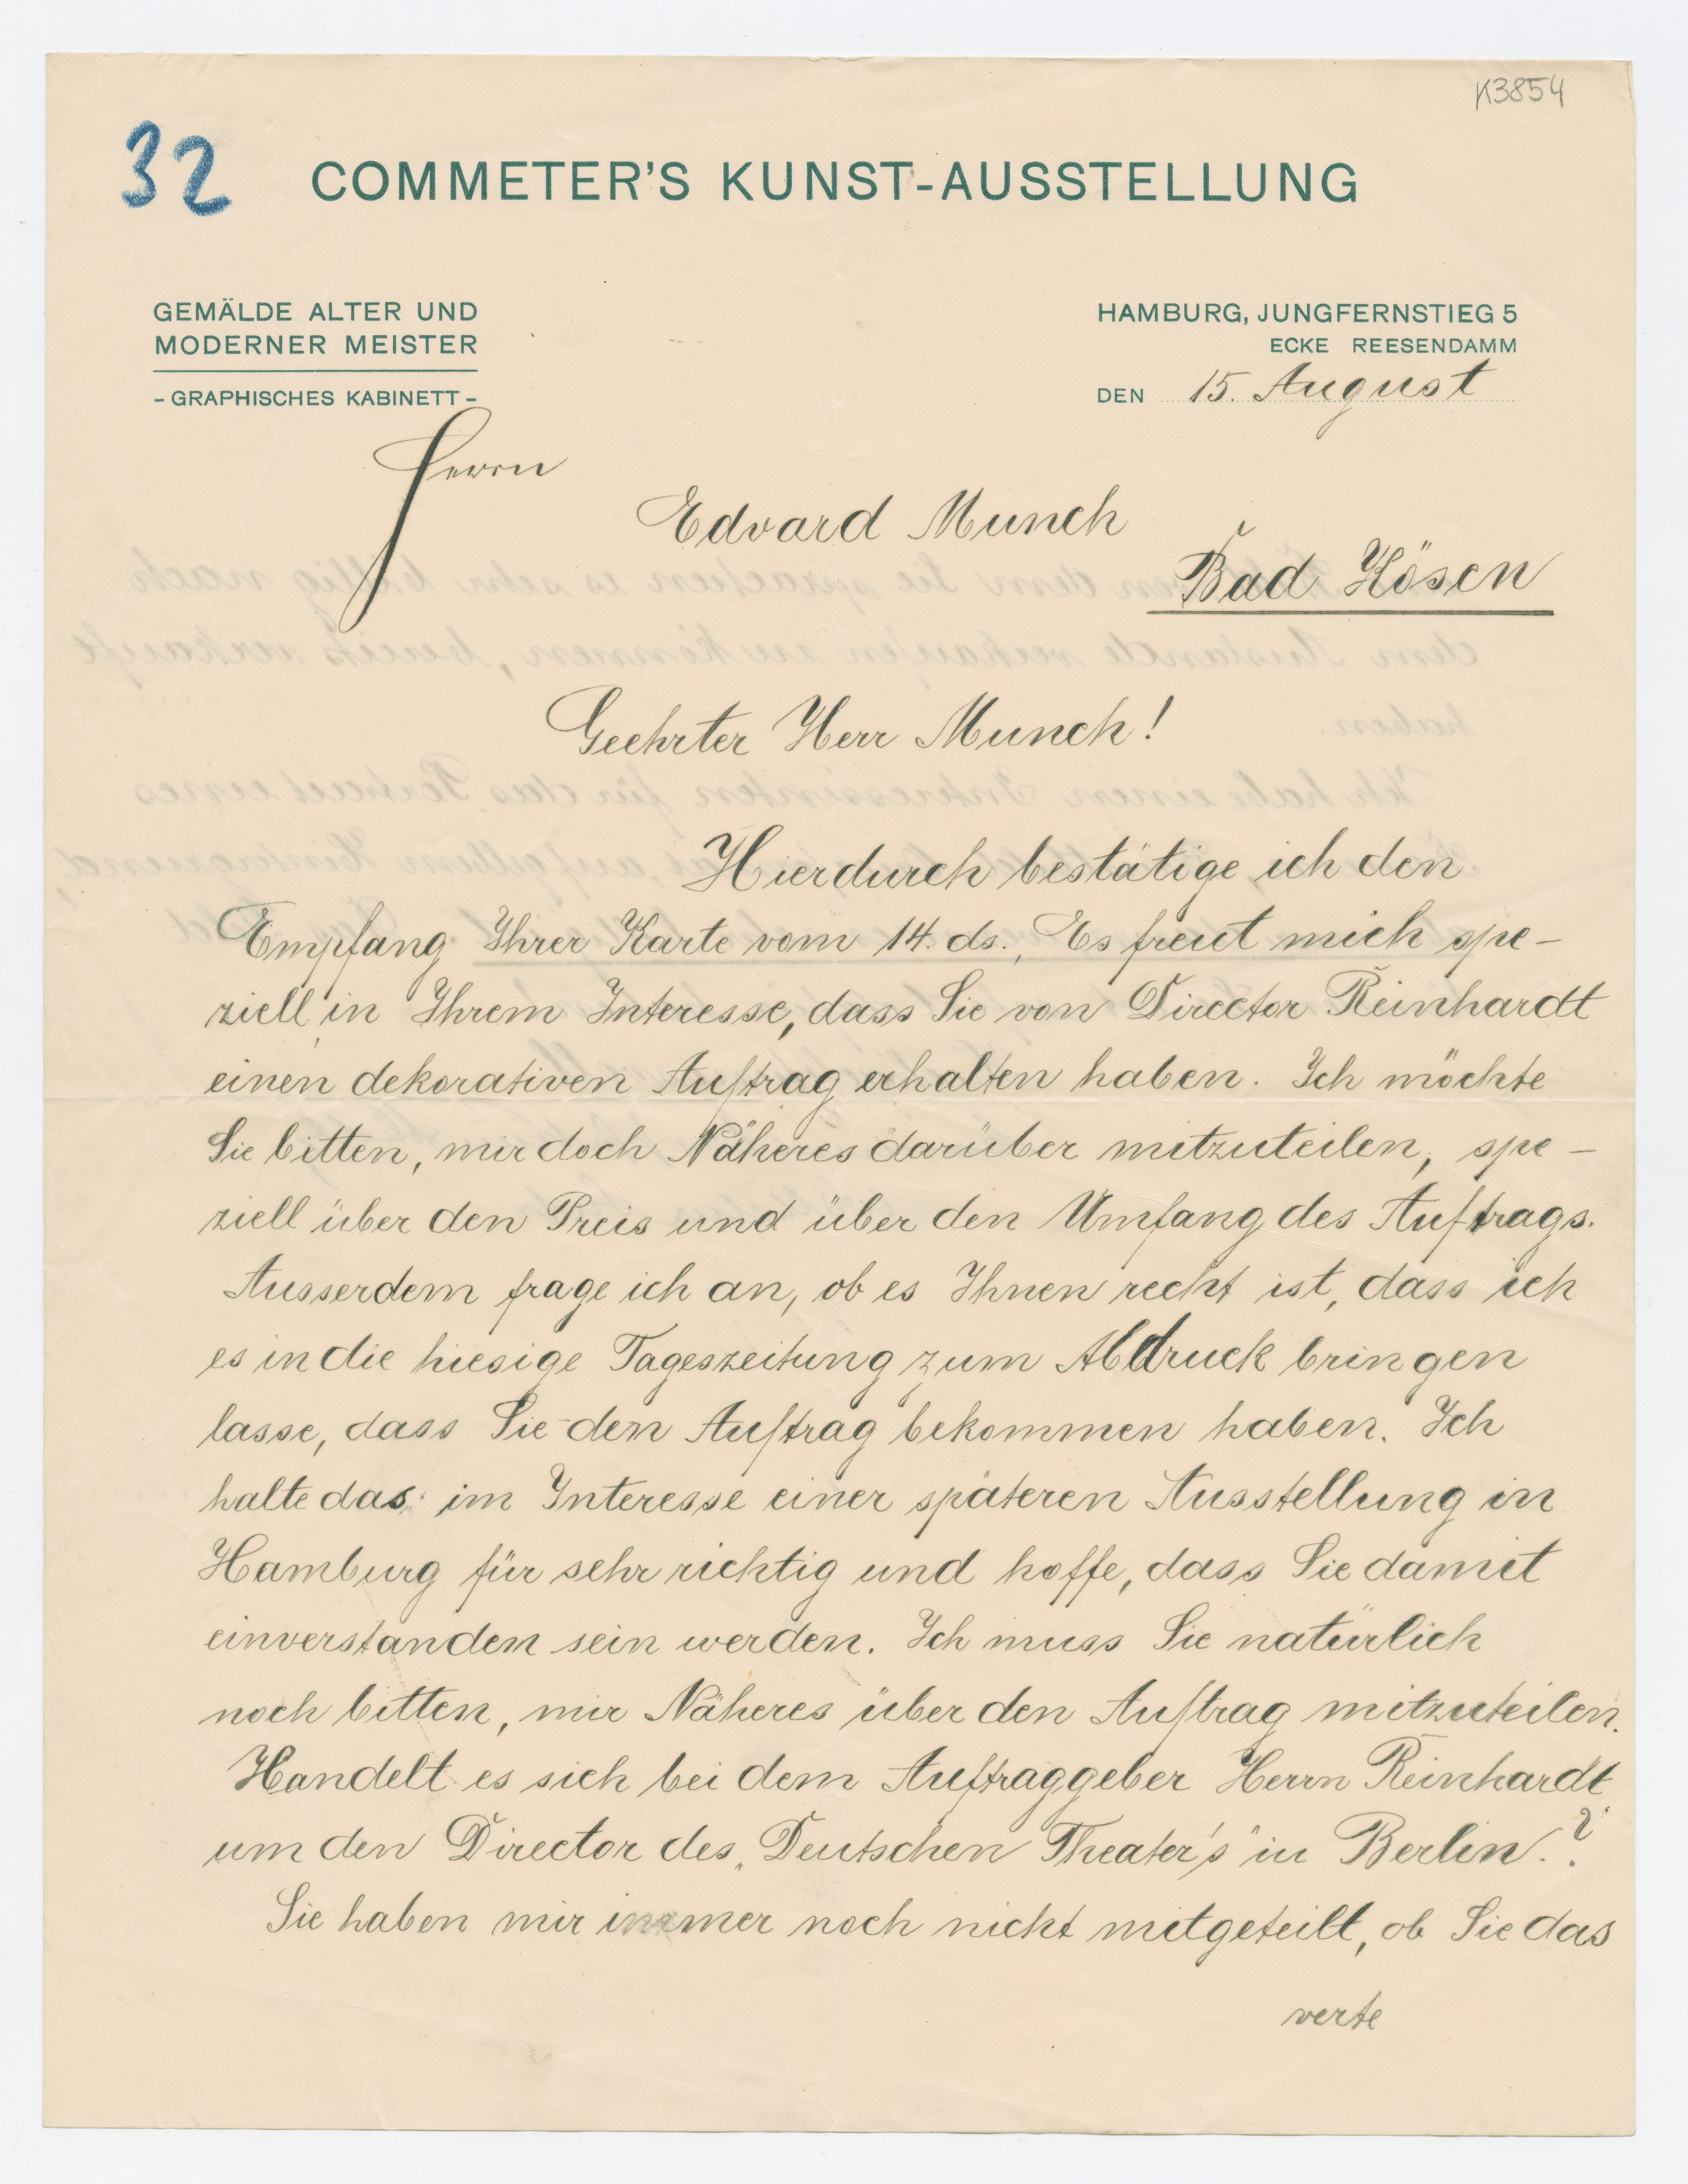 K3854
32
COMMETER'S KUNST-AUSSTELLUNG
GEMÄLDE ALTER UND
MODERNER MEISTER
- GRAPHISCHES KABINETT -
HAMBURG, JUNGFERNSTIEG 5
ECKE REESENDAMM
DEN 15. August
Herrn
Edvard Munch
Bad Kösen
Geehrter Herr Munch!
Hierdurch bestätige ich den
Empfang Ihrer Karte vom 14. ds., Es freut mich spe-
ziell in Ihrem Interesse, dass Sie von Director Reinhardt
einen dekorativen Auftrag erhalten haben. Ich möchte
Sie bitten, mir doch Näheres darüber mitzuteilen, spe-
ziell über den Preis und über den Umfang des Auftrags.
Ausserdem frage ich an, ob es Ihnen recht ist, dass ich
es in die hiesige Tageszeitung zum Abdruck bringen
lasse, dass Sie den Auftrag bekommen haben. Ich
halte das im Interesse einer späteren Ausstellung in
Hamburg für sehr richtig und hoffe, dass Sie damit
einverstanden sein werden. Ich muss Sie natürlich
noch bitten, mir Näheres über den Auftrag mitzuteilen.
Handelt es sich bei dem Auftraggeber Herrn Reinhardt
um den Director des „Deutschen Theater's" in Berlin.?
Sie haben mir immer noch nicht mitgeteilt, ob Sie das
verte